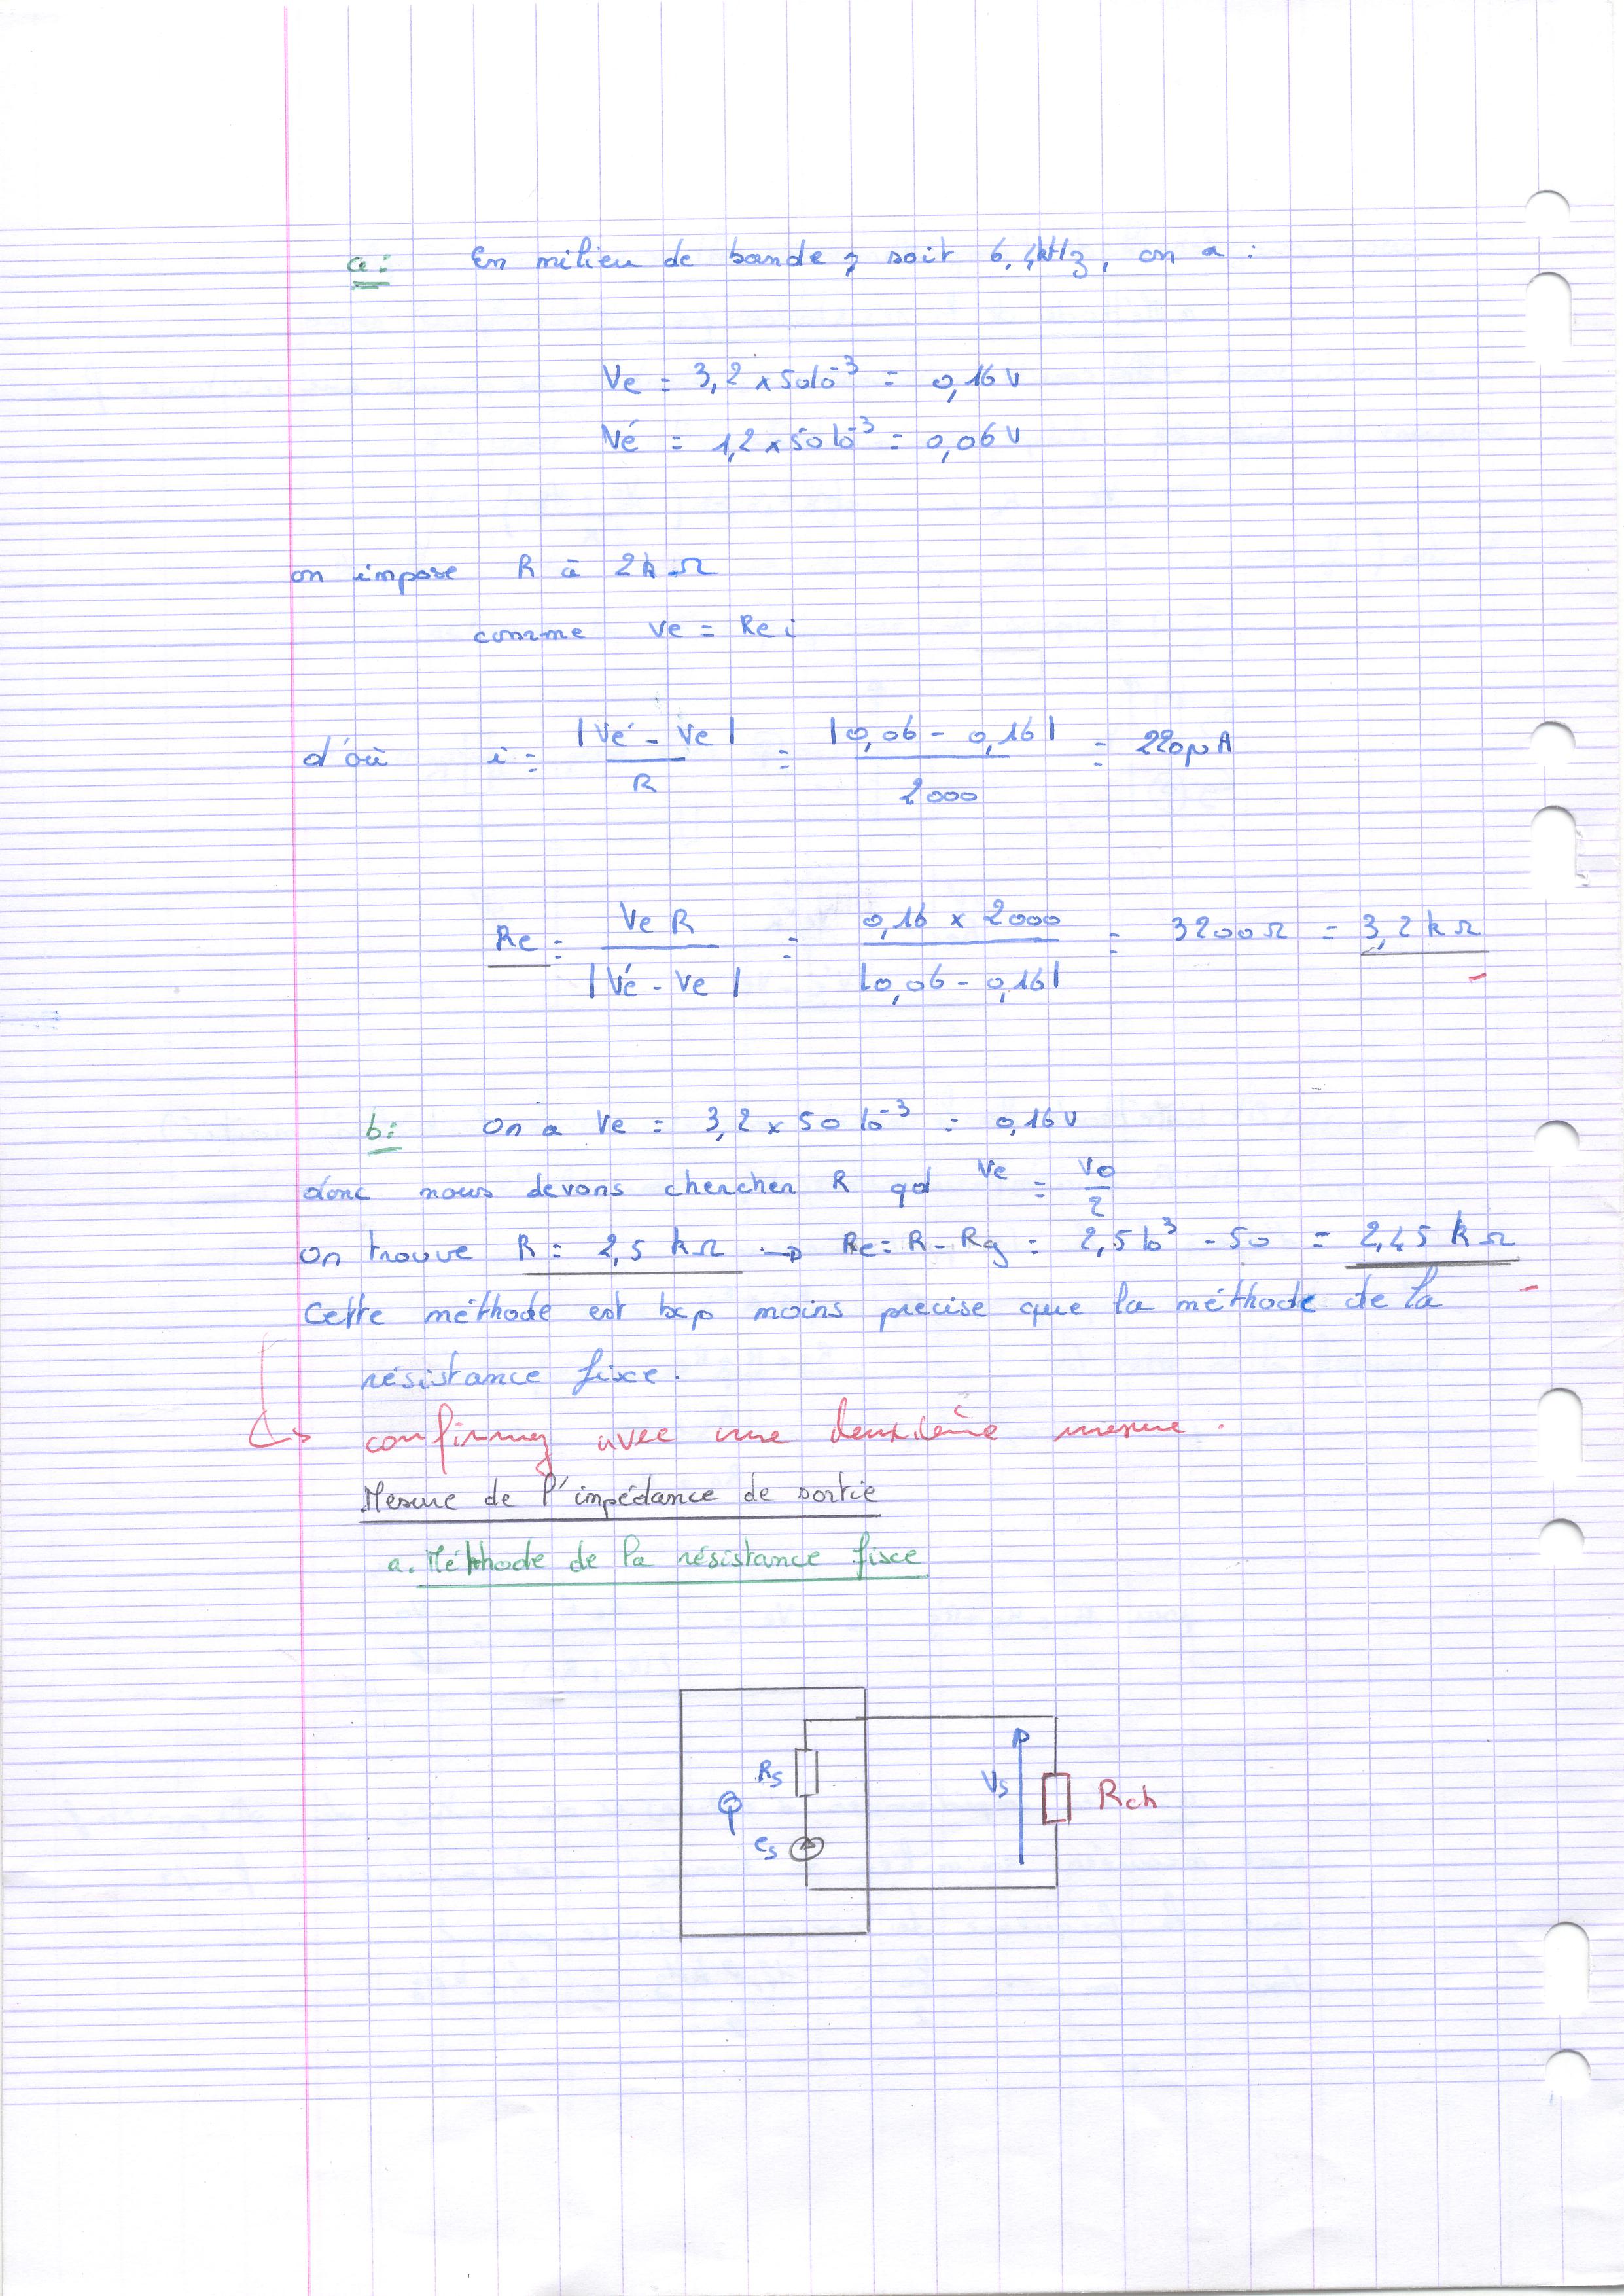 a: En milieu de bande, soit 6,4kHz, on a :
Ve = 3,2 x 50 10⁻³ = 0,16 V
Vé = 1,2 x 50 10⁻³ = 0,06 V
on impose R à 2kΩ
comme Ve = Re i
d'où i = |Vé - Ve| / R = |0,06 - 0,16| / 2000 = 220µA
Re = Ve R / |Vé - Ve| = 0,16 x 2000 / |0,06 - 0,16| = 3200Ω = 3,2 kΩ
b: On a Ve = 3,2 x 50 10⁻³ = 0,16 V
donc nous devons chercher R qd Ve = Vo / 2
On trouve R = 2,5 kΩ → Re = R - Rg = 2,5 10³ - 50 = 2,45 kΩ
Cette méthode est bcp moins precise que la méthode de la
résistance fixe.
confirmez avec une deuxième mesure.
Mesure de l'impédance de sortie
a. Méthode de la résistance fixe
Rs
Vs
Rch
Q
es